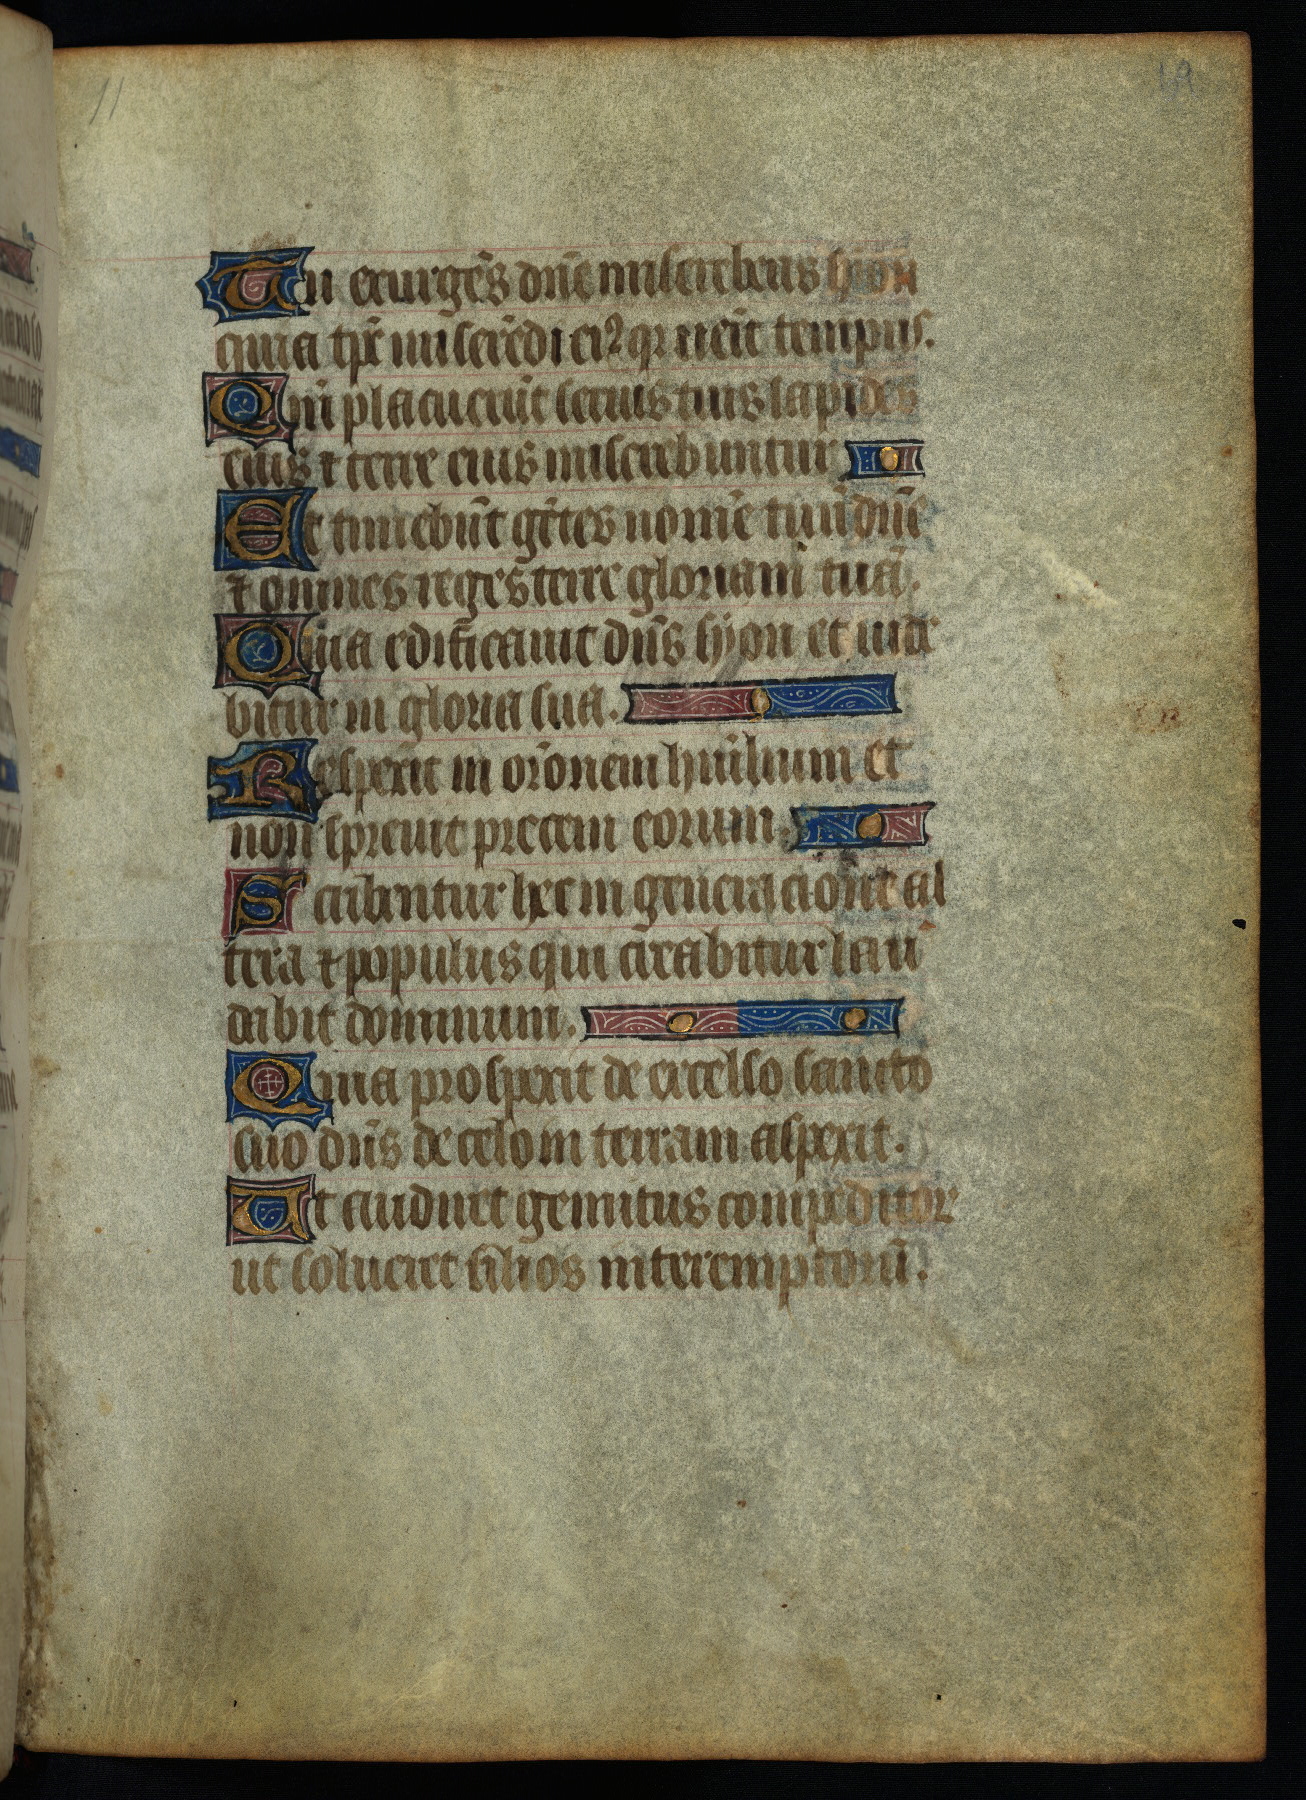 Tu exurgēs dn̄e misereberis syon
quia tp̄s miserēdi eiꝰ qꝛ uēit tempus.
Qm̄ placuerūt seruis tuis lapides
eius ⁊ terre eius miserebuntur
Et timebūt gētes nomē tuū dn̄e
⁊ omnes reges terre gloriam tuā.
Quia edificauit dn̄s syon et uide
bitur in gloria sua.
Respexit in orōnem humilium et
non spreuit precem eorum.
Scribentur hec in generacione al
tera ⁊ populus qui creabitur lau
dabit dominum.
Quia prospexit de excelso sancto
suo dn̄s de celo in terram aspexit.
Ut audiret gemitus compeditor
ut solueret filios interemptorū.